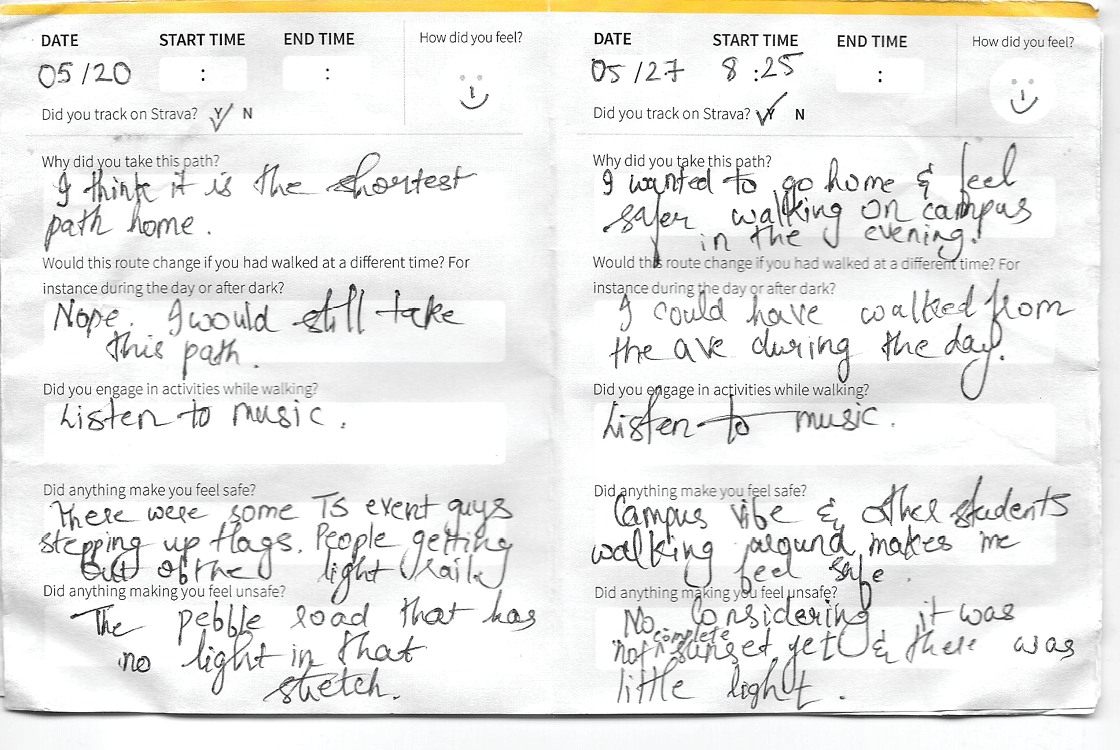 DATE START TIME END TIME How did you feel?
05/20 : :
Did you track on Strava? Y N
Why did you take this path?
I think it is the shortest
path home.
Would this route change if you had walked at a different time? For
instance during the day or after dark?
Nope. I would still take
this path.
Did you engage in activities while walking?
Listen to music.
Did anything make you feel safe?
There were some TS event guys
stepping up flags. People getting
out of the light rail
Did anything making you feel unsafe?
The pebble road that has
no light in that
stretch.
DATE START TIME END TIME How did you feel?
05/27 8:25 :
Did you track on Strava? Y N
Why did you take this path?
I wanted to go home & feel
safer walking on campus
in the evening.
Would this route change if you had walked at a different time? For
instance during the day or after dark?
I could have walked from
the ave during the day.
Did you engage in activities while walking?
Listen to music.
Did anything make you feel safe?
Campus vibe & other students
walking around makes me
feel safe.
Did anything making you feel unsafe?
No, Considering it was
not complete sunset yet & there was
little light.